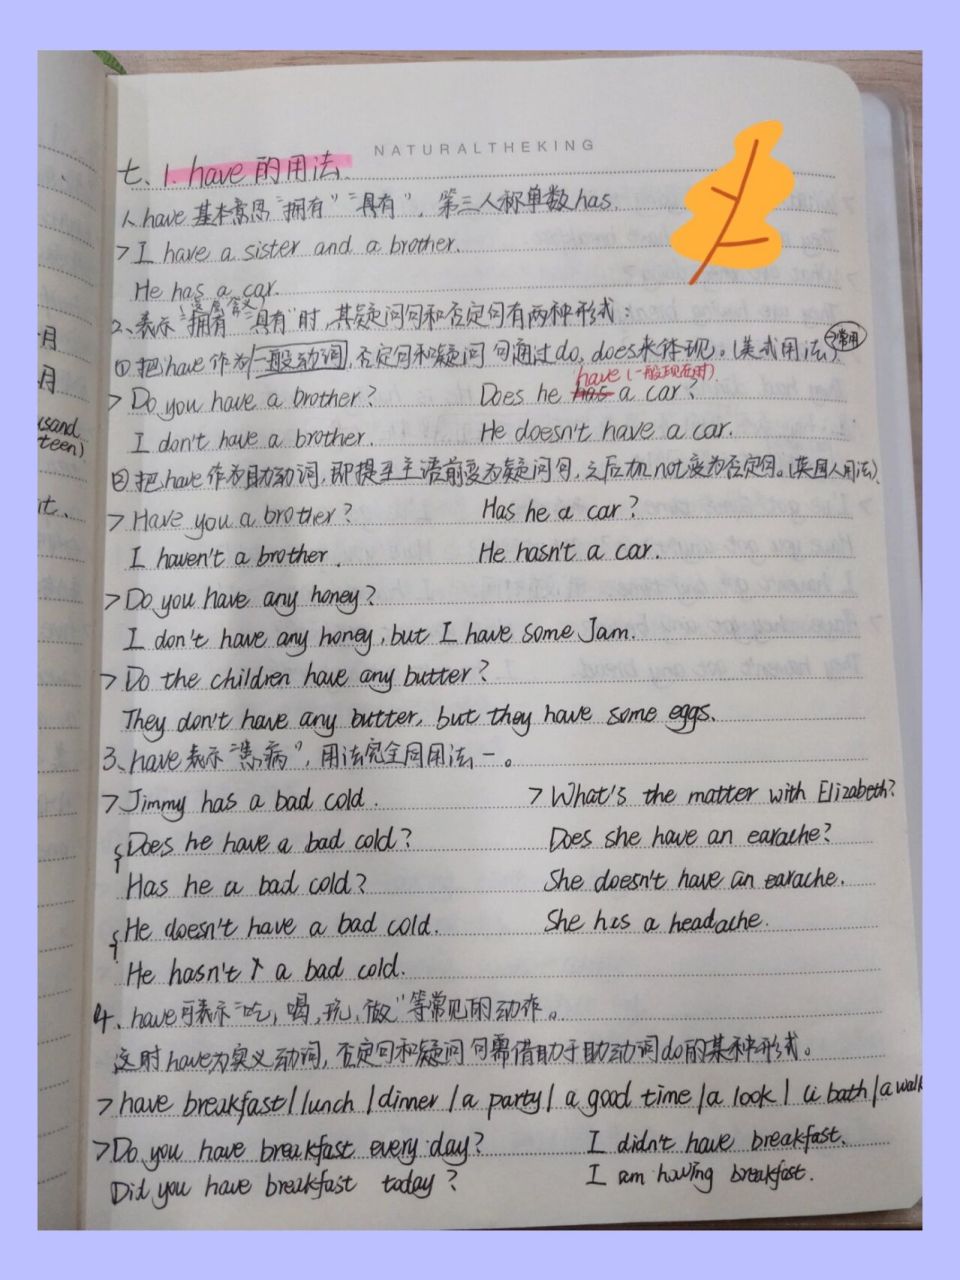 NATURALTHEKING
七、1. have 的用法.
1. have 基本意思 "拥有" "具有", 第三人称单数 has.
> I have a sister and a brother.
He has a car.
2、表示 "拥有" "具有" 时, 其疑问句和否定句有两种形式:
① 把have 作为 一般动词, 否定句和疑问句通过do, does来体现。(美式用法) 常用
have (一般现在时)
> Do you have a brother? Does he has a car?
I don't have a brother. He doesn't have a car.
② 把have 作为助动词, 即提至主语前变为疑问句, 之后加not变为否定句。(英国人用法)
> Have you a brother? Has he a car?
I haven't a brother. He hasn't a car.
> Do you have any honey?
I don't have any honey, but I have some Jam.
> Do the children have any butter?
They don't have any butter, but they have some eggs.
3、have 表示 "患病", 用法完全同用法一。
> Jimmy has a bad cold. > What's the matter with Elizabeth?
Does he have a bad cold? Does she have an earache?
Has he a bad cold? She doesn't have an earache.
He doesn't have a bad cold. She has a headache.
He hasn't a bad cold.
4、have可表示 "吃, 喝, 玩, 做" 等常见的动作。
这时have为实义动词, 否定句和疑问句需借助于助动词do的某种形式。
> have breakfast / lunch / dinner / a party / a good time / a look / a bath / a walk
> Do you have breakfast every day? I didn't have breakfast.
Did you have breakfast today? I am having breakfast.
月
月
usand
teen)
it..